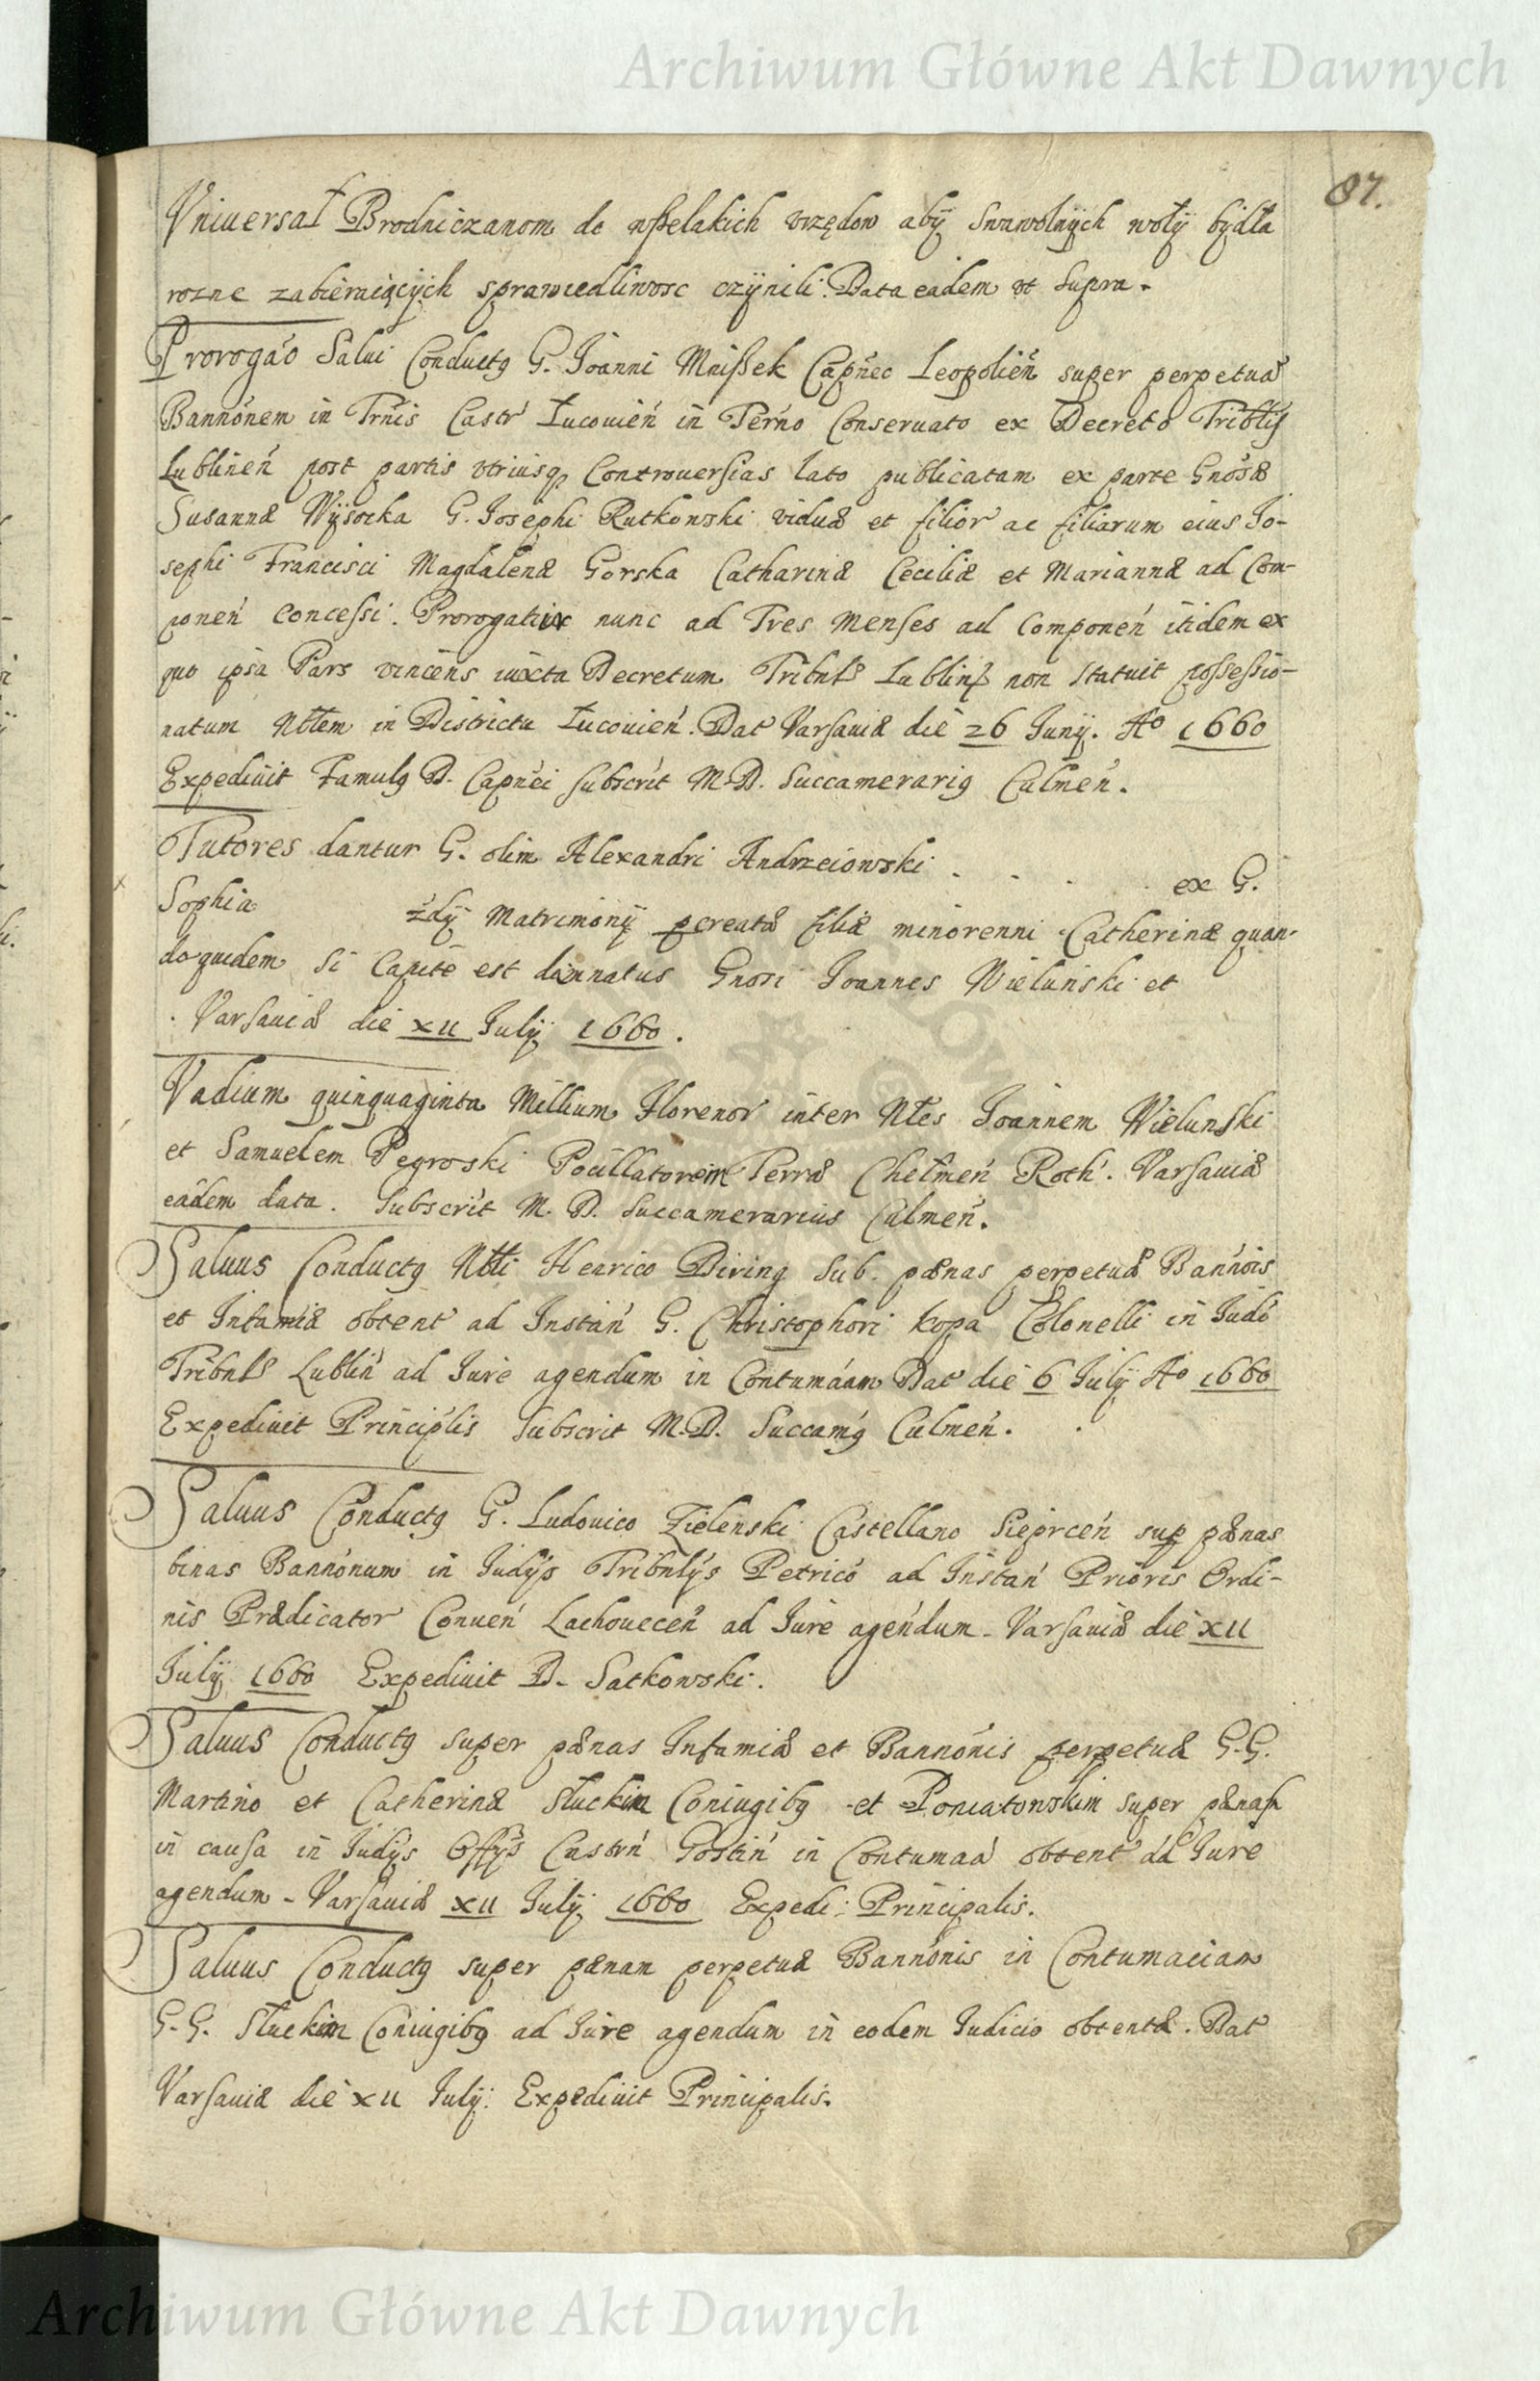 Archiwum Główne Akt Dawnych
87.
Vniuersał Brodniczanom do wßelakich vrzędow aby swawolnÿch woły bÿdła
rozne zabieraiącÿch sprawiedliwosc czÿnili. Data eadem vt supra.
Prorogaõ Salui Conductq G. Joanni Mnißek Capñeo Leopolień super perpetuæ
Bannonem in Trnis Castr Łucouień in Terno Conseruato ex Decreto Tribtis
Lublineń post partis vtriusq Controuersias lato publicatam ex parte Gnosæ
Susannæ Wÿsocka G. Josephi Rutkowski viduæ et filior ac filiarum eius Jo-
sephi Francisci Magdalenæ Gorska Catharinæ Ceciliæ et Mariannæ ad Com-
ponen concessi. Prorogatur nunc ad Tres Menses ad Componeń itidem ex
quo ipsa Pars vincens iuxta Decretum Tribnls Lublins non statuit possessio-
natum Nblem in Districtu Łucouień. Dat Varsauiæ die 26 Junÿ. Aº 1660
Expediuit Famulq D. Capñei subscrit M.D. Succamerariq Culmeń.
Tutores dantur G. olim Alexandri Andrzeiowski . . . . ex G.
Sophia żdÿ Matrimonÿ pcreatæ filiæ minorenni Catherinæ quan-
doquidem si Capite est diminatus Gnosi Joannes Wielunski et
Varsauiæ die XII Julÿ 1660.
Vadium quinquaginta Millium Florenor inter Nles Joannem Wielunski
et Samuelem Pegroski Pocillatorem Terræ Chełmeń Roth. Varsauiæ
eadem data. Subscrit M. D. Succamerarius Culmeń.
Saluus Conductq Nbli Henrico Diring sub pænas perpetuæ Bannois
et Infamiæ obtent ad Instań G. Christophori Kopa Colonelli in Judo
Tribnls Lublin ad Jure agendum in Contumaam Dat die 6 Julÿ Aº 1660
Expediuit Principlis Subscrit M.D. Succamq Culmeń.
Saluus Conductq G. Ludouico Zielenski Castellano Sieprceń sup pænas
binas Bannonum in Judÿs Tribnlÿs Petrico ad Instań Prioris Ordi-
nis Prædicator Conueń Lachoueceń ad Jure agendum. Varsauiæ die XII
Julÿ 1660 Expediuit D. Satkowski.
Saluus Conductq super pænas Infamiæ et Bannonis perpetuæ G.G.
Martino et Catherinæ Słuckim Coniugibq et Poniatowskim super pænas
in causa in Judÿs Offÿs Castrn Gostiń in Contumaa obtent ad Jure
agendum. Varsauiæ XII Julÿ 1660 Expedi: Principalis.
Saluus Conductq super pænam perpetuæ Bannonis in Contumaciam
G.G. Słuckim Coniugibq ad Jure agendum in eodem Judicio obtentæ. Dat
Varsauiæ die XII Julÿ. Expediuit Principalis.
Archiwum Główne Akt Dawnych